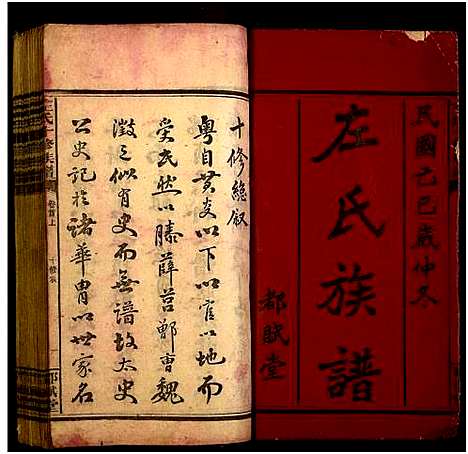 民國己巳歲仲冬
左氏族譜
都賦堂
十修總敘
粵自黃炎以下以官以地而
受氏然以滕薛莒鄶曹魏
徵之似有史而無譜故太史
公史記於諸華胄以世家名
左氏十修族譜
卷首上
都賦堂